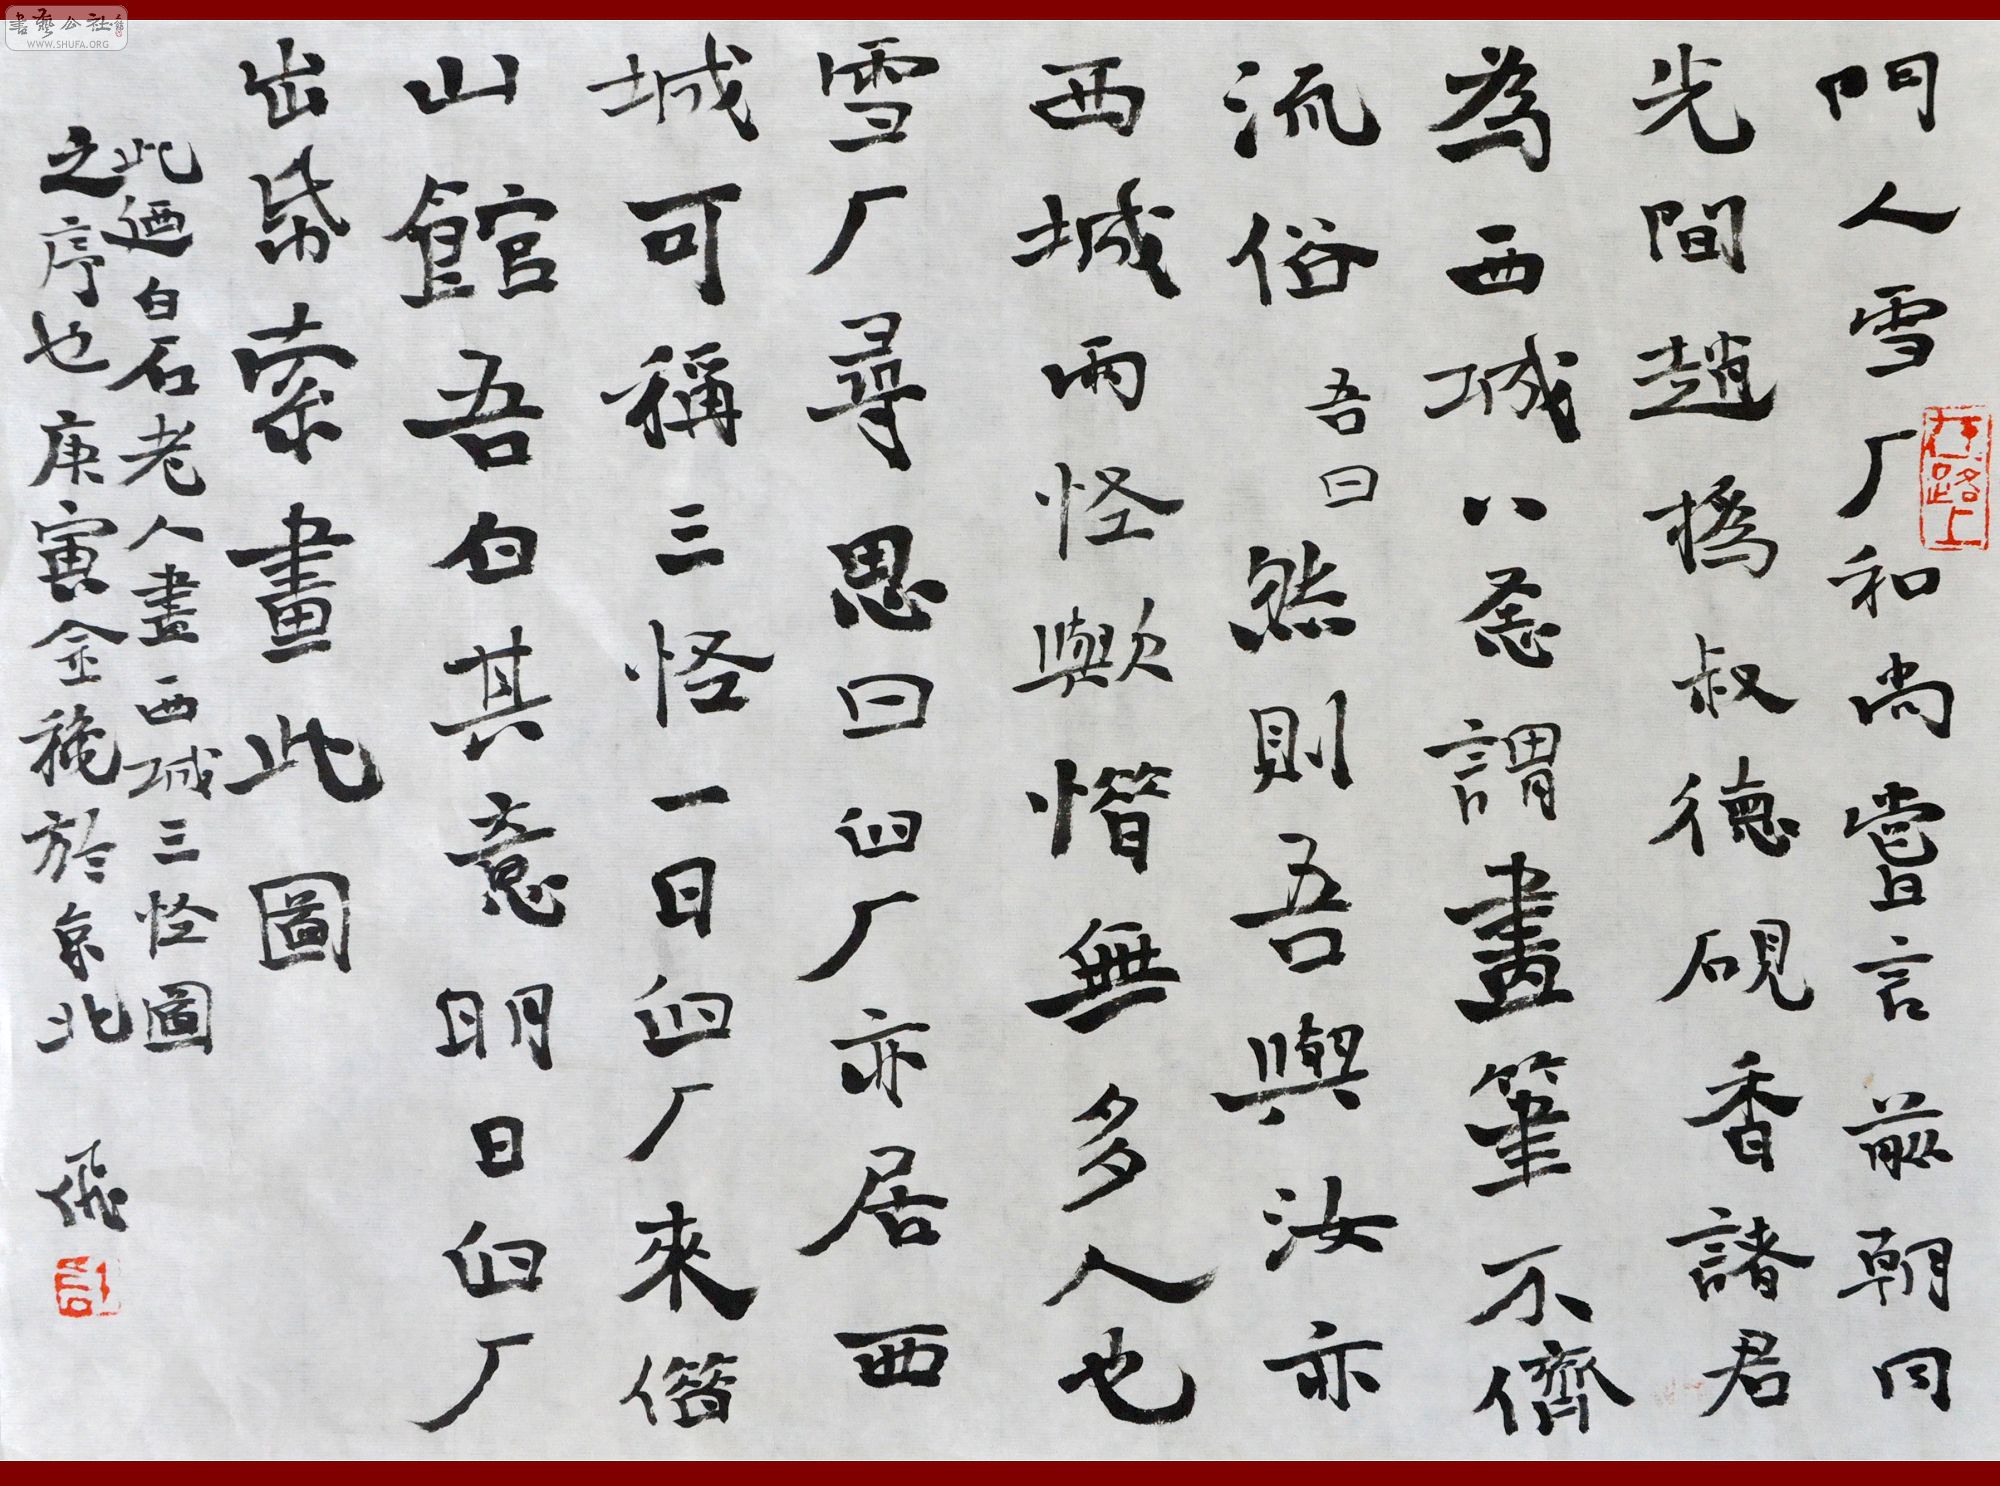 門人雪厂和尚嘗言前朝同
光間趙撝叔德硯香諸君
為西城八怪謂畫筆不儕
流俗吾曰然則吾與汝亦
西城兩怪歟惜無多人也
雪厂尋思曰臼厂亦居西
城可稱三怪一日臼厂來借
山館吾白其意明日臼厂
出帋索畫此圖
此迺白石老人畫西城三怪圖
之序也庚寅金穐於京北
書藝公社
WWW.SHUFA.ORG